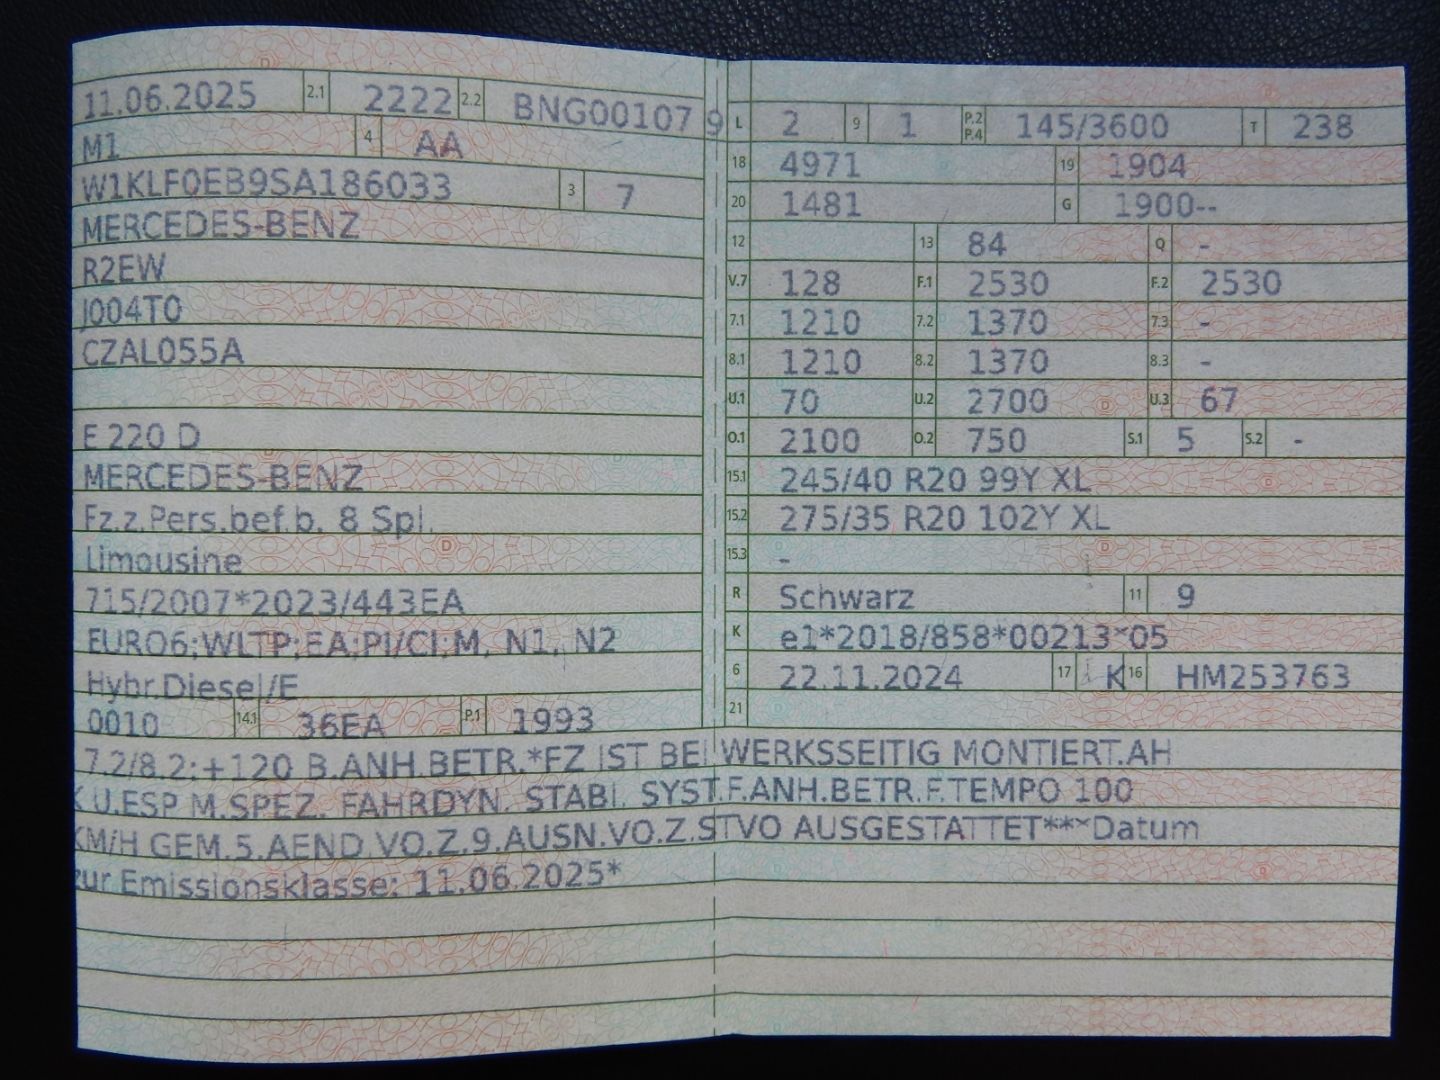 11.06.2025 2.1 2222 2.2 BNG00107 9
M1 4 AA
W1KLF0EB9SA186033 3 7
MERCEDES-BENZ
R2EW
J004T0
CZAL055A
E 220 D
MERCEDES-BENZ
Fz.z.Pers.bef.b. 8 Spl.
Limousine
715/2007*2023/443EA
EURO6;WLTP;EA;PI/CI;M, N1, N2
Hybr.Diesel/E
0010 14.1 36EA P.1 1993
L 2 9 1 P.2 P.4 145/3600 T 238
18 4971 19 1904
20 1481 G 1900--
12 13 84 Q -
V.7 128 F.1 2530 F.2 2530
7.1 1210 7.2 1370 7.3 -
8.1 1210 8.2 1370 8.3 -
U.1 70 U.2 2700 U.3 67
O.1 2100 O.2 750 S.1 5 S.2 -
15.1 245/40 R20 99Y XL
15.2 275/35 R20 102Y XL
15.3 -
R Schwarz 11 9
K e1*2018/858*00213*05
6 22.11.2024 17 K 16 HM253763
21
7.2/8.2:+120 B.ANH.BETR.*FZ IST BEI WERKSSEITIG MONTIERT.AH
K U.ESP M.SPEZ. FAHRDYN. STABI. SYST.F.ANH.BETR.F.TEMPO 100
KM/H GEM.5.AEND.VO.Z.9.AUSN.VO.Z.STVO AUSGESTATTET***Datum
zur Emissionsklasse: 11.06.2025*